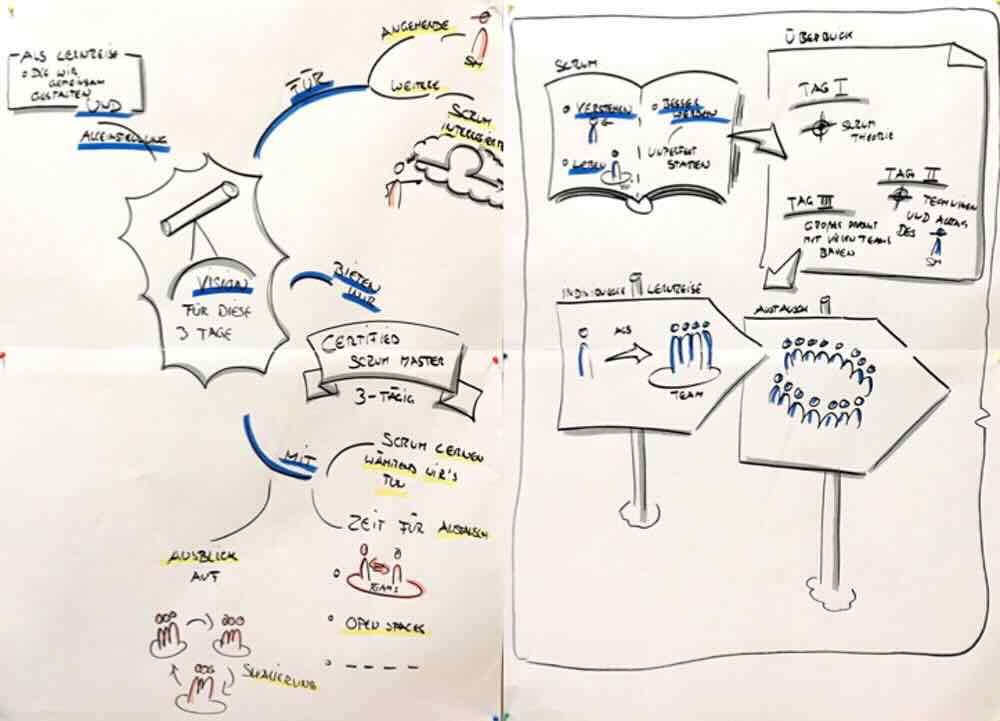 ALS LERNREISE
DIE WIR
GEMEINSAM
GESTALTEN
UND
FÜR
ANGEHENDE
SM
WEITERE
SCRUM
VISION
FÜR DIESE
3 TAGE
BIETEN
WIR
CERTIFIED
SCRUM MASTER
3-TÄGIG
MIT
SCRUM LERNEN
WÄHREND WIR'S
TUN
ZEIT FÜR AUSTAUSCH
TEAMS
OPEN SPACES
AUSBLICK
AUF
SKALIERUNG
SCRUM
VERSTEHEN
LEBEN
BESSER
WERDEN
STATTEN
ÜBERBLICK
TAG I
SCRUM
THEORIE
TAG II
TECHNIKEN
UND ALLTAG
DES
SM
TAG III
GROßES PROJEKT
MIT VIELEN TEAMS
BAUEN
INDIVIDUELLE LERNREISE
ALS
TEAM
AUSTAUSCH